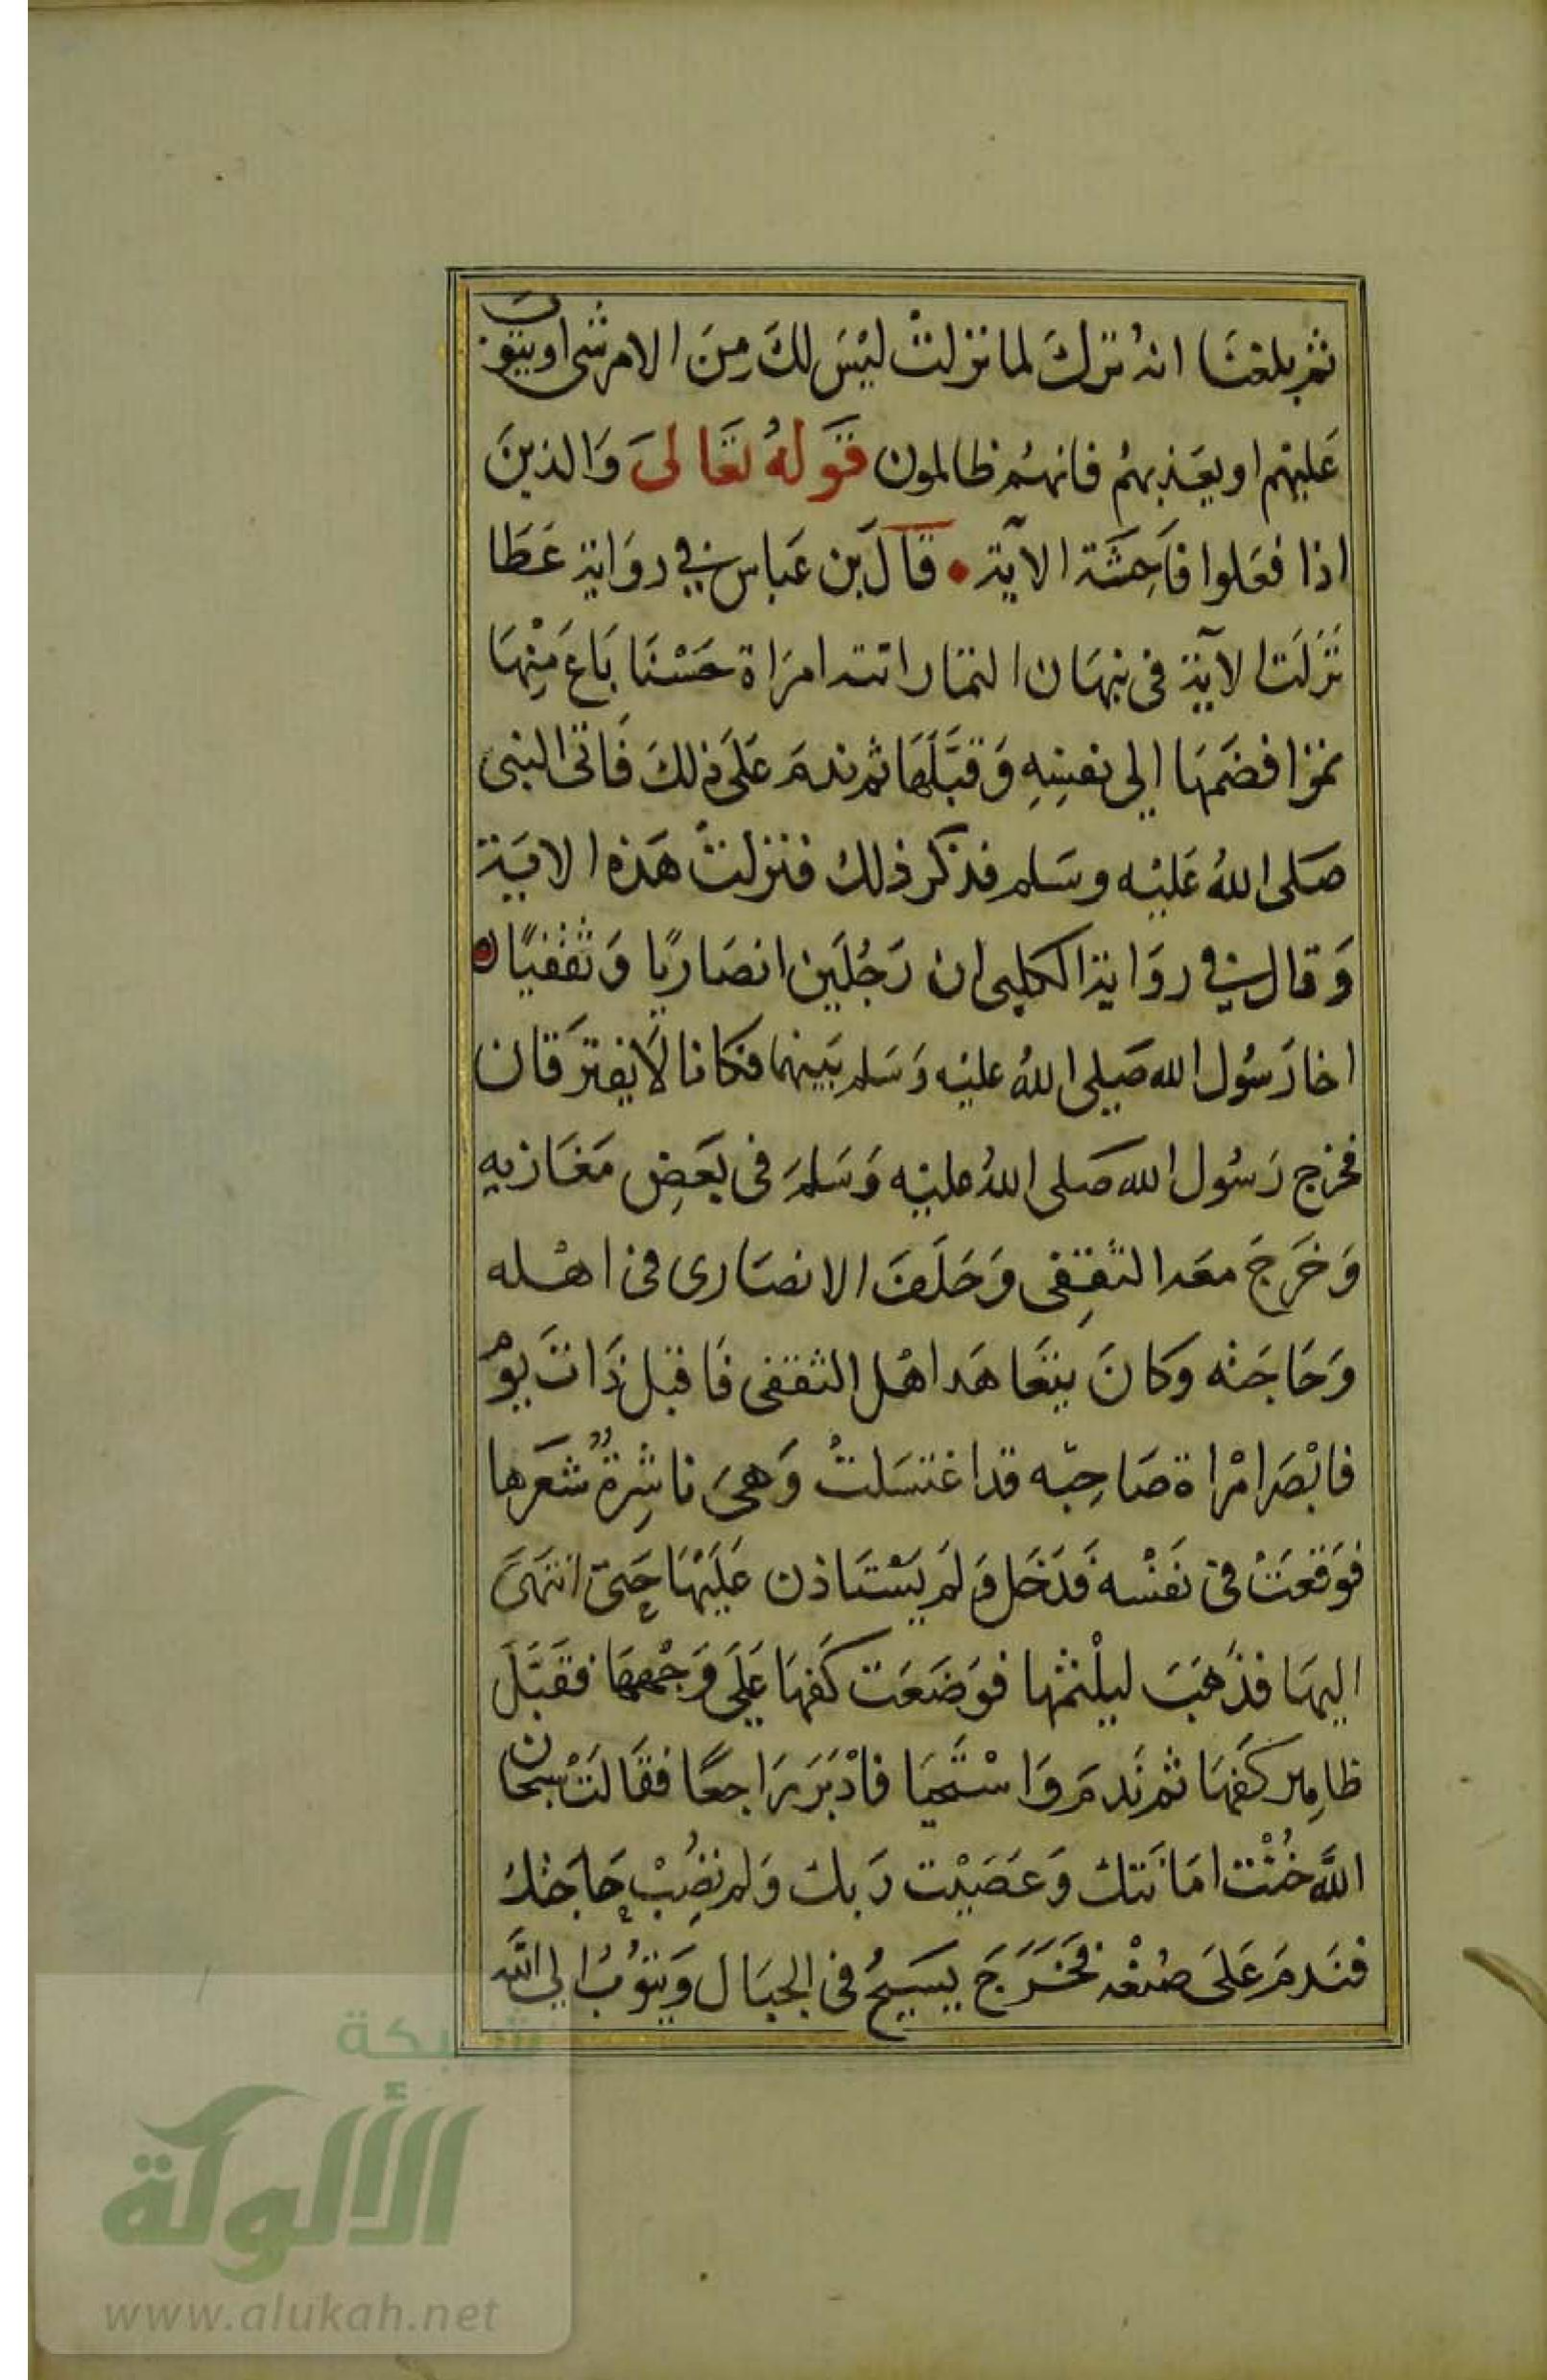 ثم بلغنا انه ترك لما نزلت ليْسَ لكَ مِنَ الامر شى او يتوب
عَليْهم او يعَذبهُم فانهُم ظالمون قَولهُ تَعَالىَ وَالذينَ
اذا فعَلوا فَاحِشَة الآية • قَالَ بن عَباس في روَاية عَطَا
نَزلَت الآية فى نبهَان التمّار اتته امرَاة حَسْنَا بَاعَ مِنْهَا
تمرًا فضَمّهَا إلى نفسِهِ وَقبَّلَهَا ثم ندمَ عَلَى ذلكَ فَاتى النبى
صَلى اللهُ عَليْه وسَلم فذكر ذلك فنزلتْ هَذه الاية
وَقال في روَاية الكلبى ان رَجُلَين انصَاريًا وَثقفيًا
اخا رَسُول الله صَلى اللهُ عليْه وَسَلم بَينهما فكانا لَا يفترَقان
فخرج رَسُول الله صَلى اللهُ عليْه وَسَلمَ فى بَعَضِ مَغَازيهِ
وَخَرَجَ معَه الثقِفى وَخَلَفَ الانصَارى فى اهْله
وَحَاجَته وَكانَ يتعَاهَد اهْل الثقفى فَاقبل ذَاتَ يوْم
فابْصَر امْراة صَاحِبّه قد اغتسَلتْ وَهىَ ناشِرةٌ شعَرها
فوَقعَتْ فى نَفسْه فَدَخَل وَلَم يَسْتَاذن عَلَيْهَا حَتىّ انتهَىَ
اليهَا فذَهَبَ ليلْثمْها فوَضَعَت كَفهَا عَلَى وَجْههَا فقَبَّلَ
ظاهِر كَفهَا ثم نَدمَ وَاسْتَحيَا فادْبَرَ رَاجعًا فقَالتْ سبحَان
اللَّه خُنْتَ امَانَتك وَعَصَيْت رَبك وَلم تصِبْ حَاجَتك
فنَدمَ عَلىَ صُنعْه فَخَرَجَ يَسيحُ فى الجبَال وَيتوُبُ الى اللَّه
شبكة
الألوكة
www.alukah.net